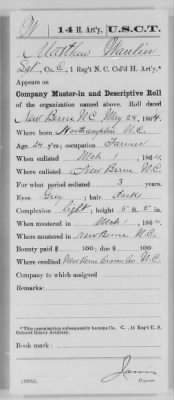 W | 14 H. Art'y. | U.S.C.T.
Matthew
Sgt, Co. C, 1 Reg't N. C. Col'd H. Art'y.*
Appears on
Company Muster-in and Descriptive Roll
of the organization named above. Roll dated
New Berne N.C. May 24, 1864.
Where born Northampton N.C.
Age 24 y'rs; occupation Farmer
When enlisted Mch 1, 1864.
Where enlisted New Berne N.C.
For what period enlisted 3 years.
Eyes Grey; hair Dark
Complexion Light; height 5 ft. 5 in.
When mustered in Mch 1, 1864.
Where mustered in New Berne N.C.
Bounty paid $ 100; due $ 100
Where credited New Berne Craven Co N.C.
Company to which assigned
Remarks:
* This organization subsequently became Co. C, 14 Reg't U. S. Colored Heavy Artillery.
Book mark:
Copyist.